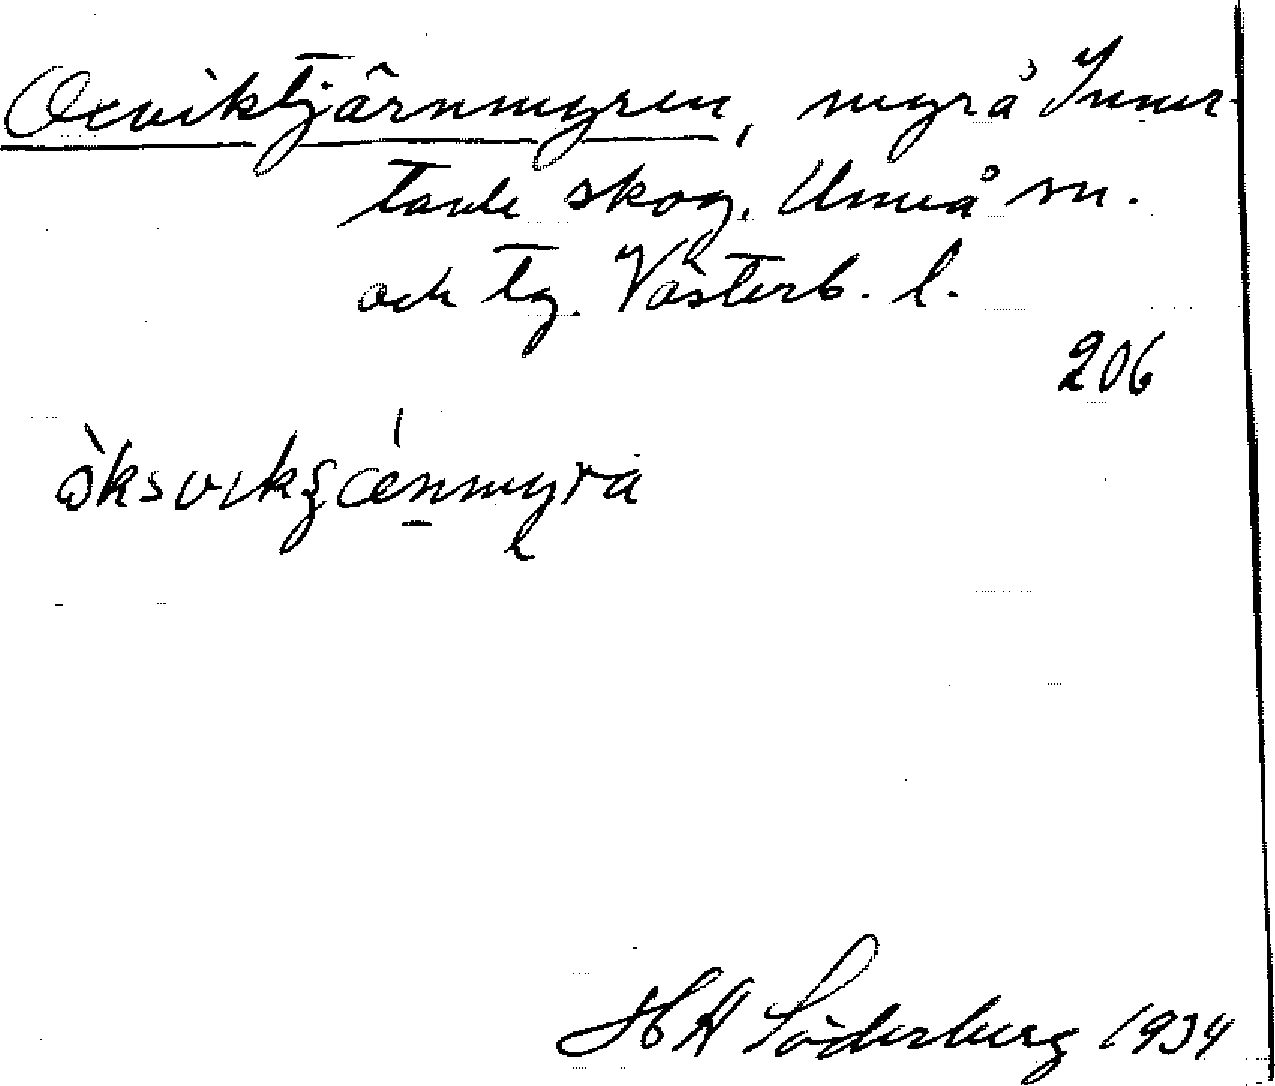 Oxviktjärnmyren, myr å Inner-
tavle skog. Umeå sn.
och tg. Västerb. l.
206
H A Söderberg 1934